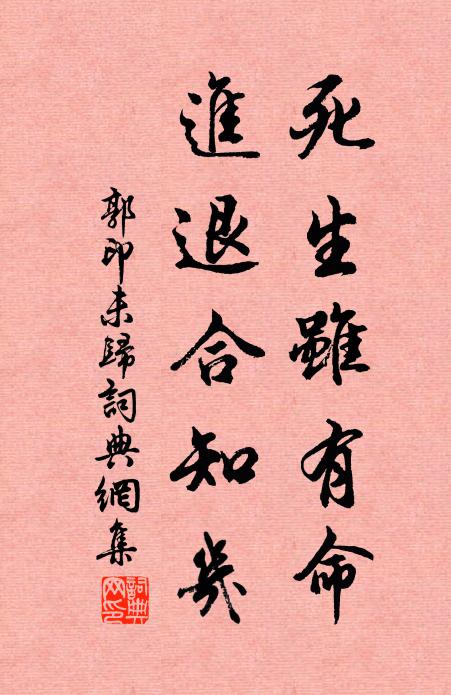 死生雖有命
進退合知幾
郭印未歸詞典網集
詞典網印